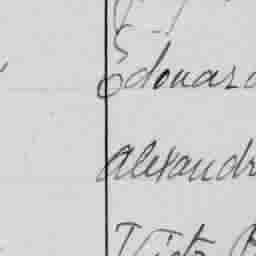 Édouard
Alexandr
Victor